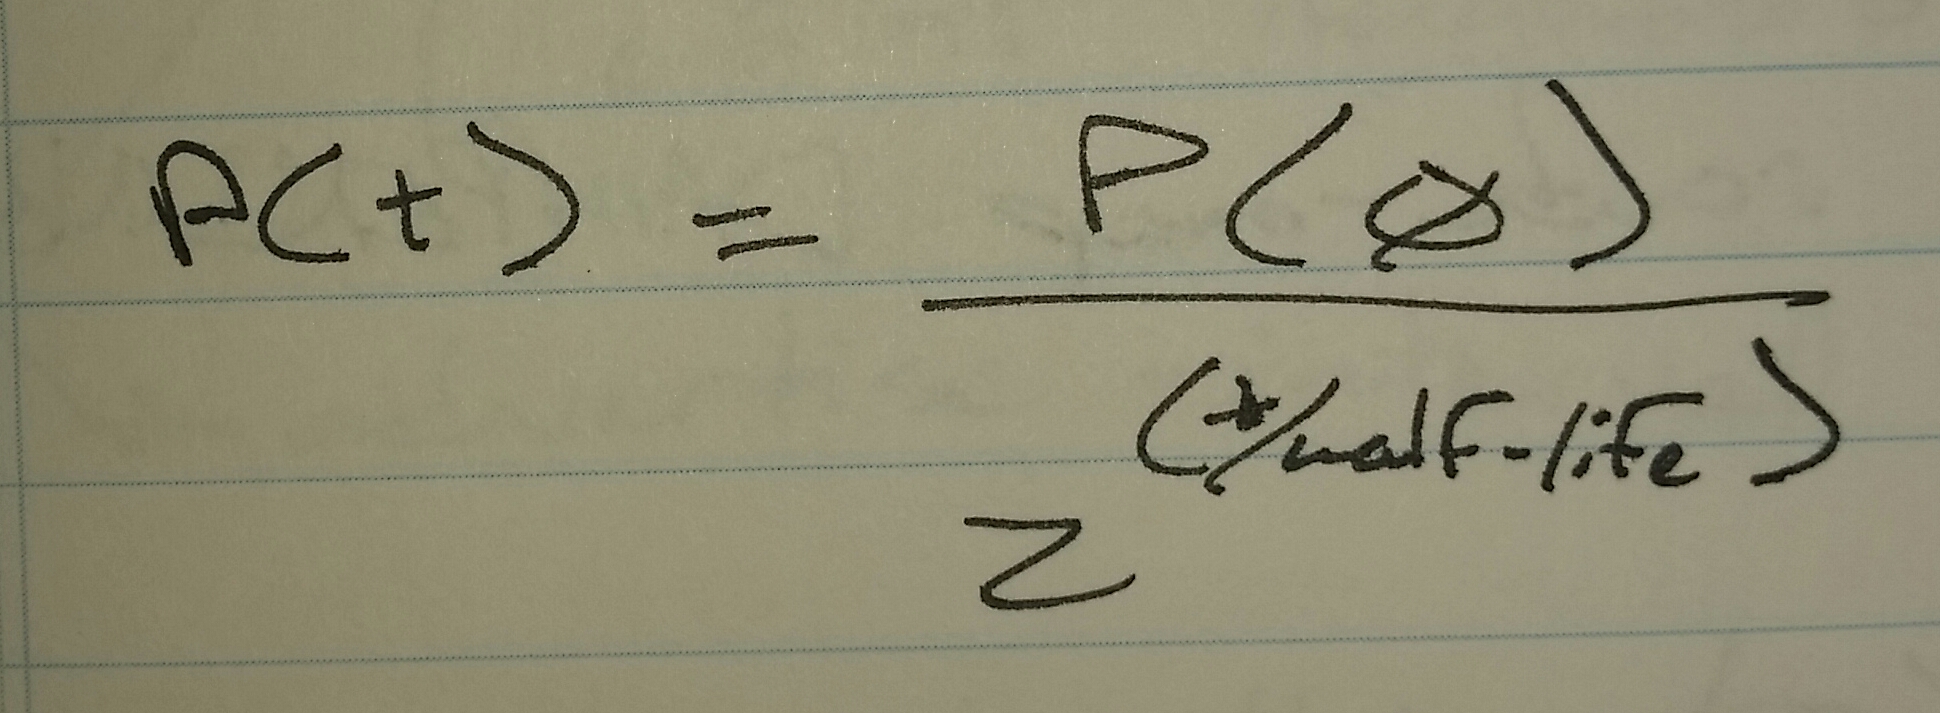 P(t) = P(0)
(t/half-life)
2